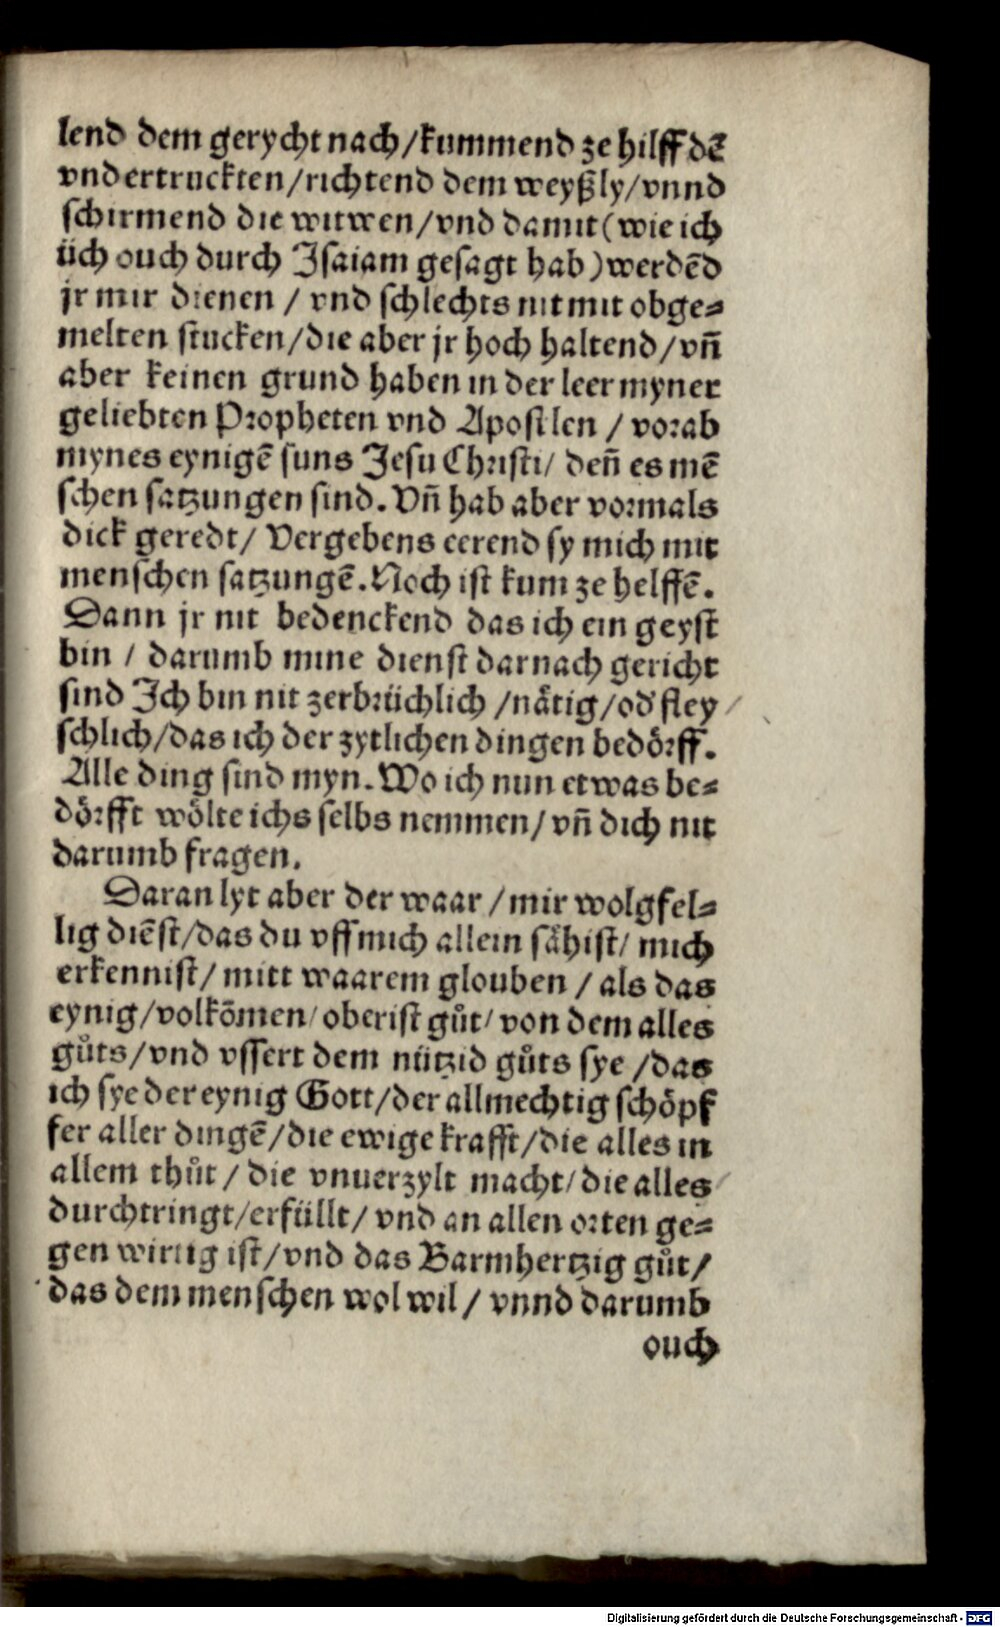 lend dem gerycht nach/kummend ze hilff dē
vndertruckten/richtend dem weyßly/vnnd
schirmend die witwen/vnd damit (wie ich
üch ouch durch Jsaiam gesagt hab) werdēd
jr mir dienen / vnd schlechts nit mit obge⸗
melten stucken/die aber jr hoch haltend/vñ
aber keinen grund haben in der leer myner
geliebten Propheten vnd Apostlen / vorab
mynes eynigē suns Jesu Christi/ deñ es mē
schen satzungen sind. Vñ hab aber vormals
dick geredt/ Vergebens eerend sy mich mit
menschen satzungē. Noch ist kum ze helffē.
Dann jr nit bedenckend das ich ein geyst
bin / darumb mine dienst darnach gericht
sind Jch bin nit zerbrüchlich /nåtig/od' fley
schlich/das ich der zytlichen dingen bedörff.
Alle ding sind myn. Wo ich nun etwas be⸗
dörfft wölte ichs selbs nemmen/vñ dich nit
darumb fragen.
Daran lyt aber der waar /mir wolgfel⸗
lig diēst/das du vff mich allein såhist/ mich
erkennist/mitt waarem glouben / als das
eynig/volkōmen/oberist gůt/von dem alles
gůts/vnd vssert dem nützid gůts sye /das
ich sye der eynig Gott/der allmechtig schöpf
fer aller dingē/die ewige krafft/die alles in
allem thůt / die vnuerzylt macht/die alles
durchtringt/erfüllt/ vnd an allen orten ge⸗
gen wirtig ist/vnd das Barmhertzig gůt/
das dem menschen wol wil / vnnd darumb
ouch
Digitalisierung gefördert durch die Deutsche Forschungsgemeinschaft - DFG